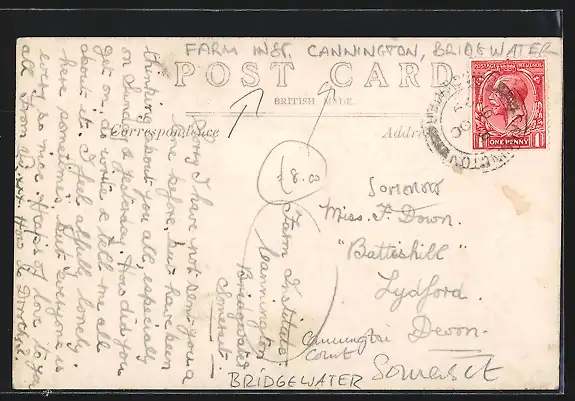 FARM INST. CANNINGTON, BRIDGEWATER
POST CARD
BRITISH MADE.
Correspondence
Address
POSTAGE REVENUE
ONE PENNY
Sorry I have not sent you a
line before, but have been
thinking about you all, especially
on Sunday & yesterday. How did you
get on, do write & tell me all
about it. I feel awfully lonely
here sometimes, but everyone is
ever so nice. Heaps of love to you
all from
£8.00
Farm Institute
Cannington
Bridgwater
Somerset.
Miss. F. Down.
"Battishill"
Lydford.
Devon.
Cannington
Court
BRIDGEWATER
Somerset